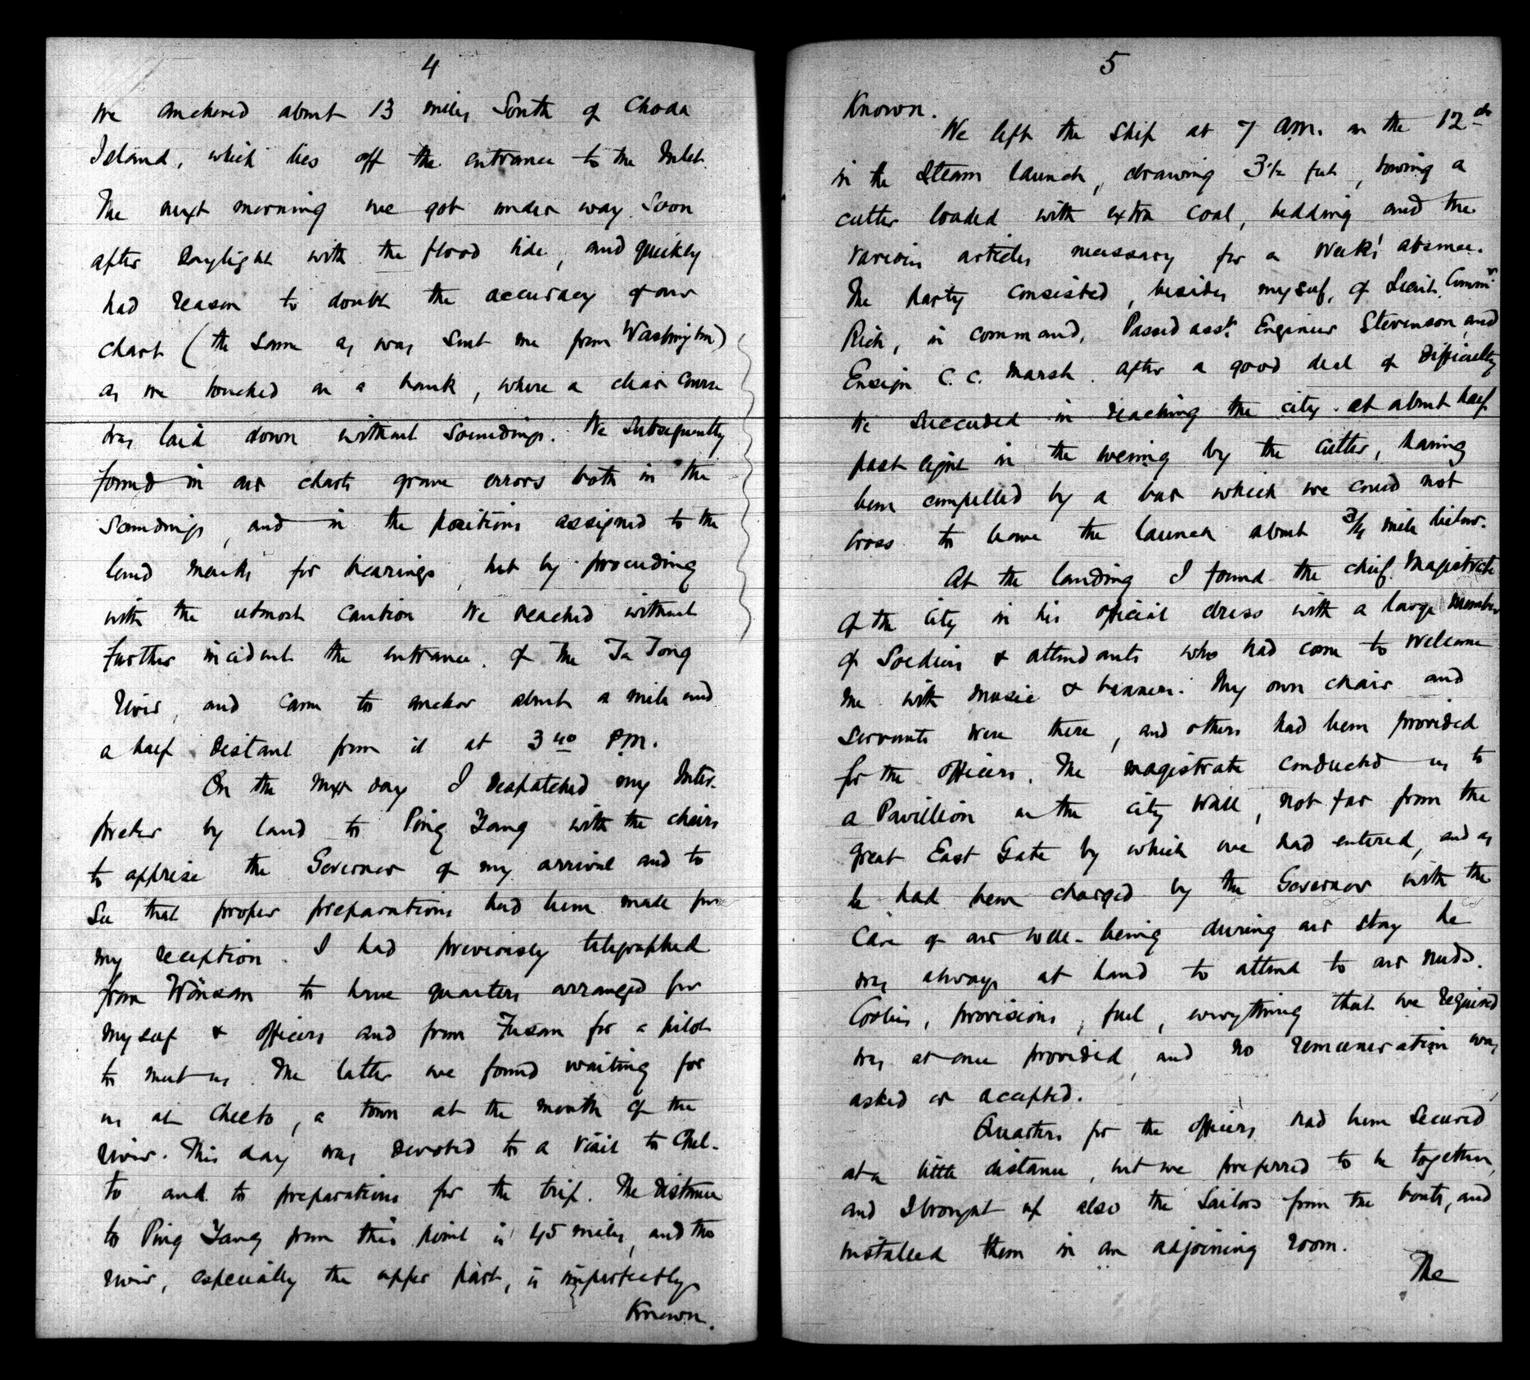 4
We anchored about 13 miles South of Choda
Island, which lies off the entrance to the Inlet.
The next morning we got under way soon
after daylight with the flood tide, and quickly
had reason to doubt the accuracy of our
chart (the same as was sent me from Washington)
as we touched on a bank, where a clear course
was laid down without soundings. We subsequently
found in our charts grave errors both in the
soundings, and in the positions assigned to the
land marks for bearings, but by proceeding
with the utmost caution we reached without
further incident the entrance of the Ta Tong
river, and came to anchor about a mile and
a half distant from it at 3 40 P.M.
On the next day I despatched my Inter-
preter by land to Ping Yang with the chairs
to apprise the Governor of my arrival and to
see that proper preparations had been made for
my reception. I had previously telegraphed
from Wönsan to have quarters arranged for
myself & officers and from Fusan for a pilot
to meet us. The latter we found waiting for
us at Cheeto, a town at the mouth of the
river. This day was devoted to a visit to Chel-
to and to preparations for the trip. The distance
to Ping Yang from this point is 45 miles, and the
river, especially the upper part, is imperfectly
Known.
5
Known.
We left the ship at 7 am. on the 12th
in the steam launch, drawing 3½ feet, towing a
cutter loaded with extra coal, bedding and the
various articles necessary for a week's absence.
The party consisted, besides myself, of Lieut. Commr
Rich, in command, Passed asst. Engineer Stevenson, and
Ensign C. C. Marsh. After a good deal of difficulty
we succeeded in reaching the city at about half
past eight in the evening by the cutter, having
been compelled by a bar which we could not
cross to leave the launch about ¾ mile below.
At the landing I found the chief Magistrate
of the city in his official dress with a large number
of soldiers & attendants who had come to welcome
me with music & banners. My own chair and
servants were there, and others had been provided
for the officers. The magistrate conducted us to
a Pavillion on the city wall, not far from the
great East Gate by which we had entered, and as
he had been charged by the Governor with the
care of our well-being during our stay he
was always at hand to attend to our needs.
Coolies, provisions, fuel, everything that we required
was at once provided, and no remuneration was
asked or accepted.
Quarters for the officers had been secured
at a little distance, but we preferred to be together,
and I brought up also the sailors from the boats, and
installed them in an adjoining room.
The